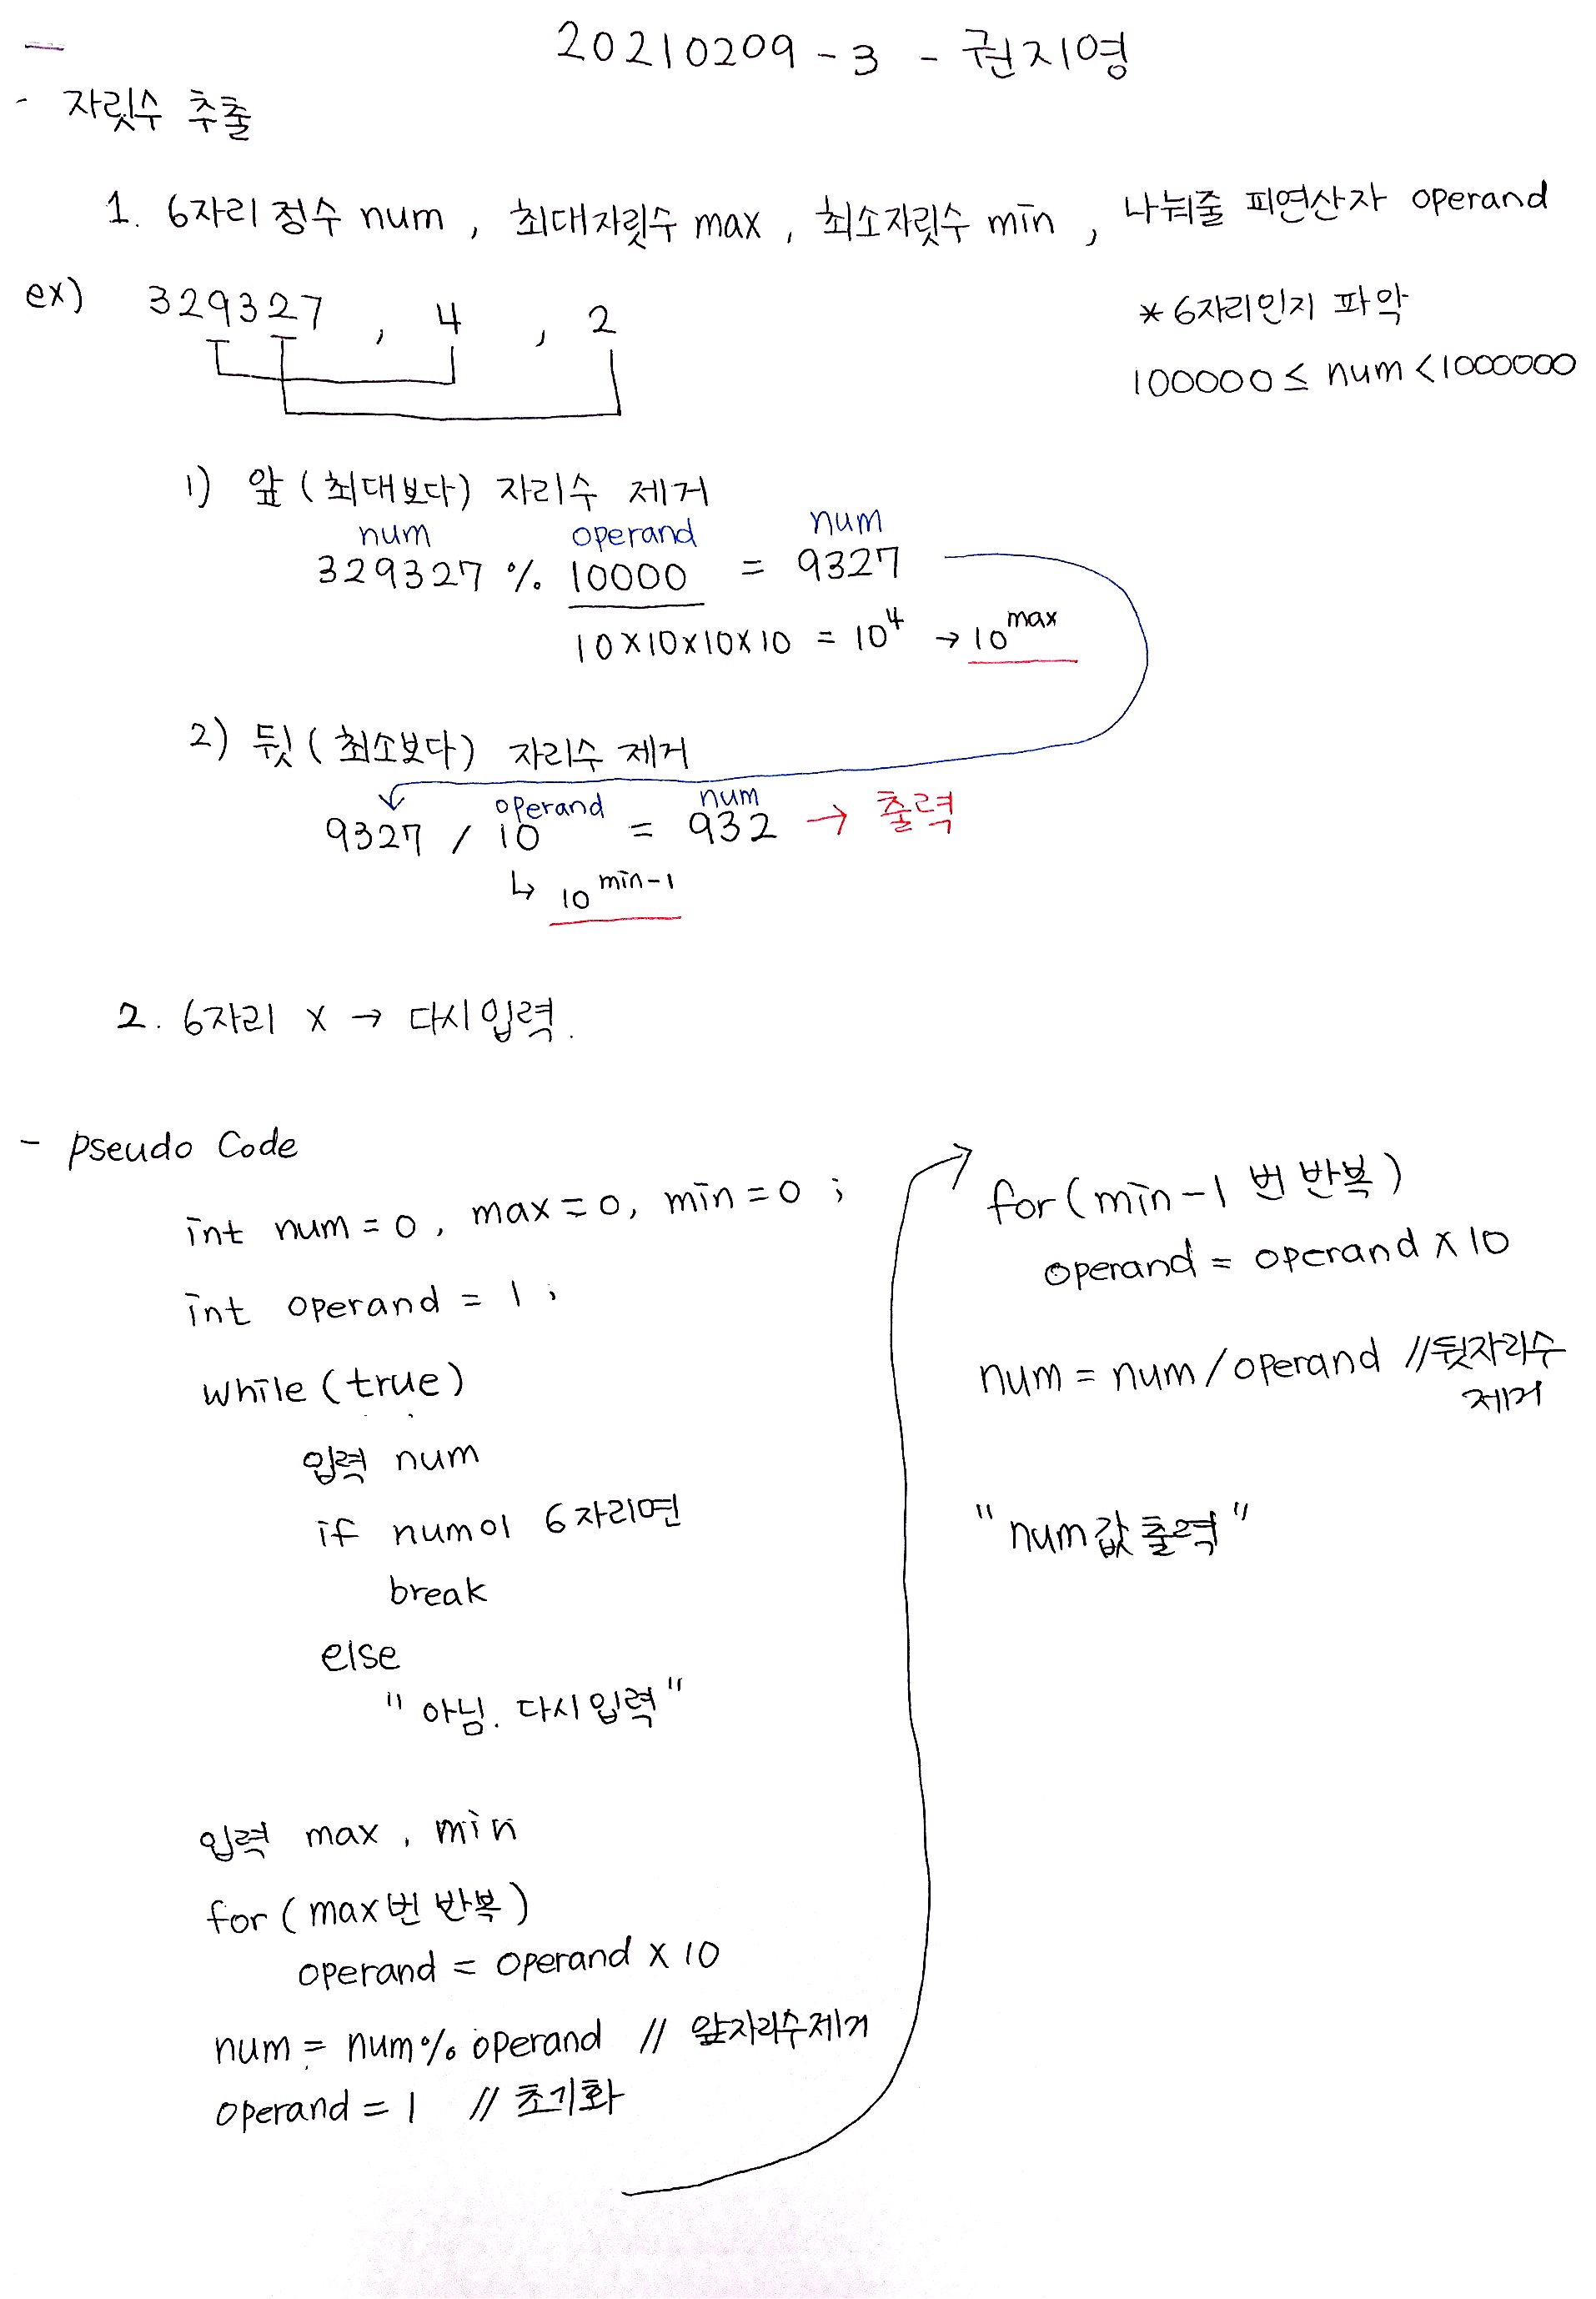 20210209 - 3 - 권지영
- 자릿수 추출
1. 6자리 정수 num , 최대자릿수 max , 최소자릿수 min , 나눠줄 피연산자 operand
ex) 329327 , 4 , 2
* 6자리인지 파악
100000 ≤ num < 1000000
1) 앞 ( 최대보다 ) 자리수 제거
num operand num
329327 % 10000 = 9327
10 x 10 x 10 x 10 = 10⁴ → 10^max
2) 뒷 ( 최소보다 ) 자리수 제거
operand num
9327 / 10 = 932 → 출력
↳ 10^min-1
2. 6자리 x → 다시 입력.
- pseudo Code
int num = 0 , max = 0, min = 0 ;
int operand = 1 ;
while ( true )
입력 num
if num이 6자리면
break
else
" 아님. 다시 입력 "
입력 max , min
for ( max번 반복 )
operand = operand x 10
num = num % operand // 앞자리수제거
operand = 1 // 초기화
for ( min - 1 번 반복 )
operand = operand x 10
num = num / operand // 뒷자리수
제거
" num 값 출력 "